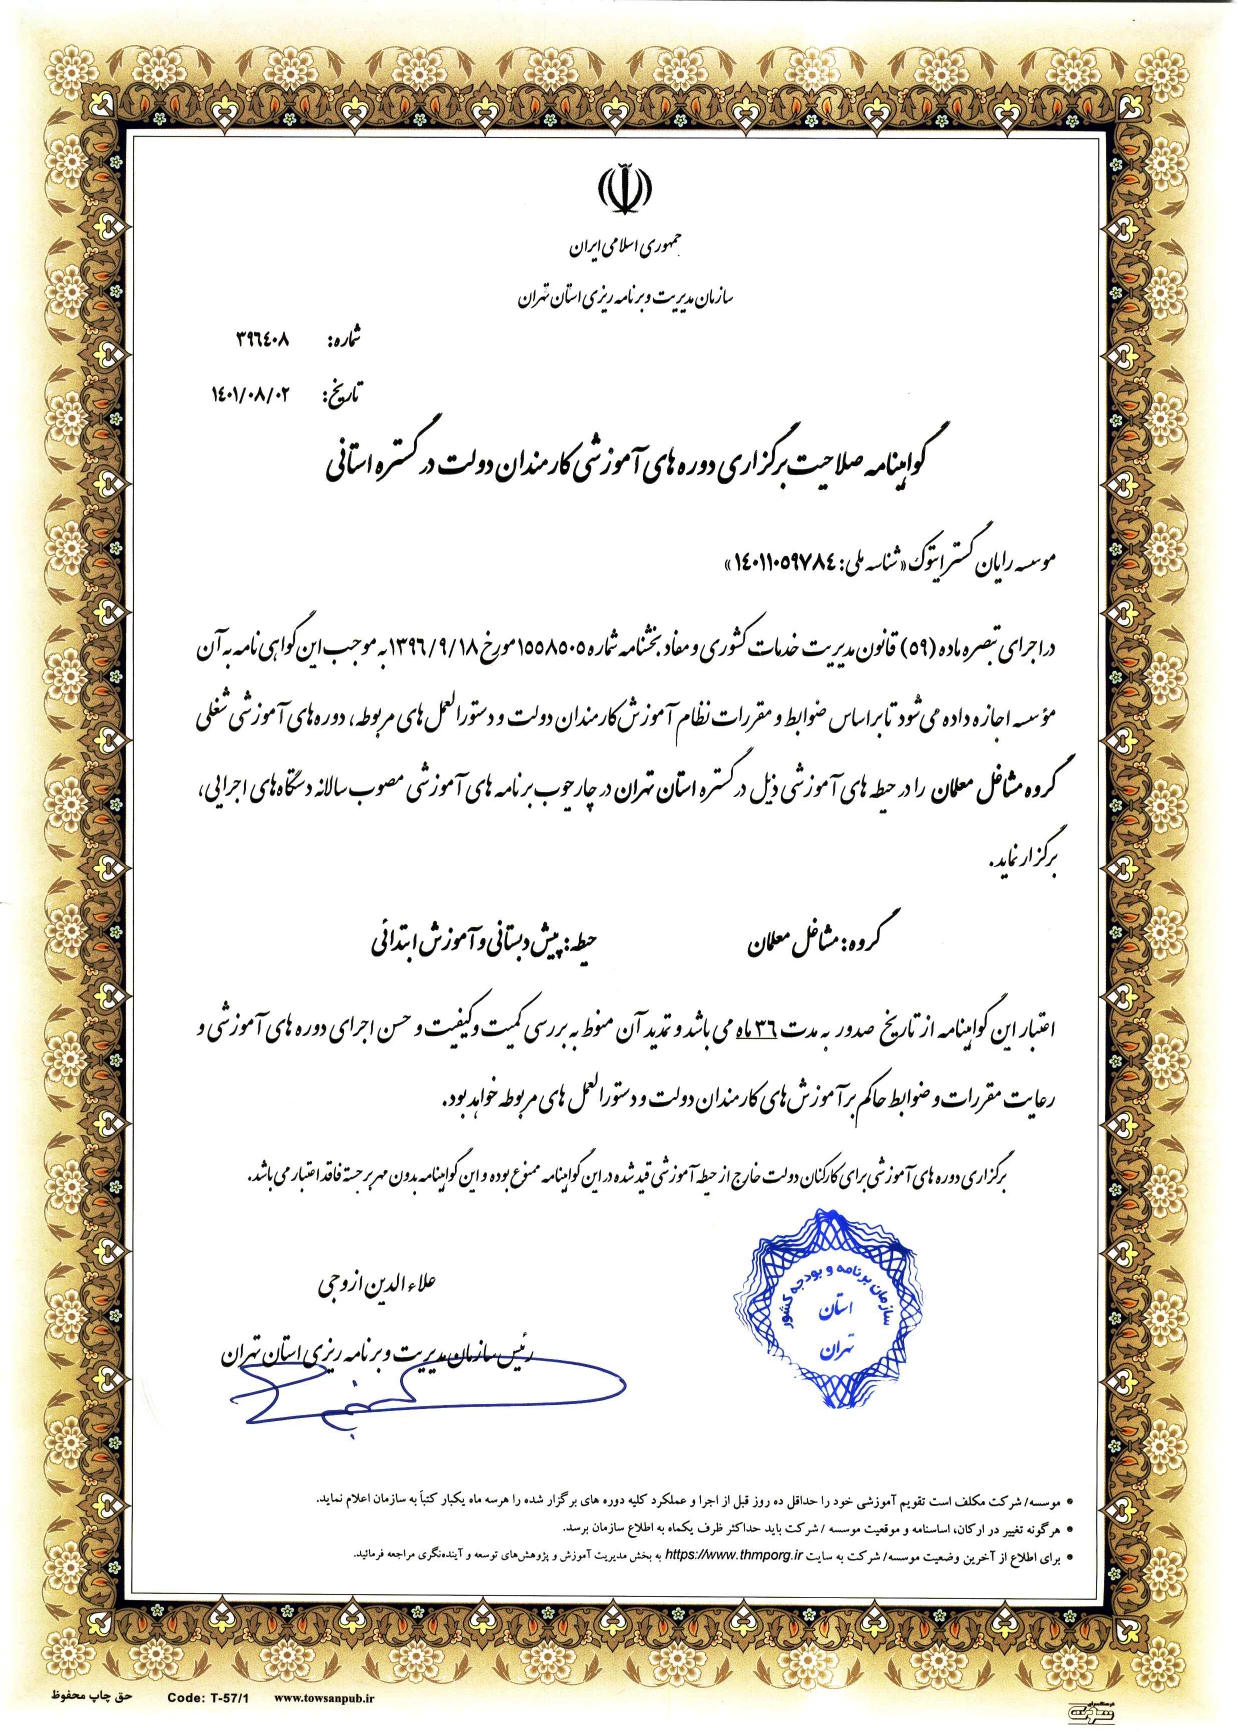 جمهوری اسلامی ایران
سازمان مدیریت و برنامه ریزی استان تهران
شماره: ۳۹٦٤۰۸
تاریخ: ۱٤۰۱/۰۸/۰۲
گواهینامه صلاحیت برگزاری دوره های آموزشی کارمندان دولت در گستره استانی
موسسه رایان گستر ایتوک «شناسه ملی: ۱٤۰۱۱۰۵۹۷۸٤»
در اجرای تبصره ماده (۵۹) قانون مدیریت خدمات کشوری و مفاد بخشنامه شماره ۱۵۵۸۵۰۵ مورخ ۱۳۹٦/۹/۱۸ به موجب این گواهی نامه به آن
مؤسسه اجازه داده می شود تا براساس ضوابط و مقررات نظام آموزش کارمندان دولت و دستورالعمل های مربوطه، دوره های آموزشی شغلی
گروه مشاغل معلمان را در حیطه های آموزشی ذیل در گستره استان تهران در چارچوب برنامه های آموزشی مصوب سالانه دستگاه های اجرایی،
برگزار نماید.
گروه: مشاغل معلمان حیطه: پیش دبستانی و آموزش ابتدائی
اعتبار این گواهینامه از تاریخ صدور به مدت ۳٦ ماه می باشد و تمدید آن منوط به بررسی کمیت و کیفیت و حسن اجرای دوره های آموزشی و
رعایت مقررات و ضوابط حاکم بر آموزش های کارمندان دولت و دستورالعمل های مربوطه خواهد بود.
برگزاری دوره های آموزشی برای کارکنان دولت خارج از حیطه آموزشی قید شده در این گواهینامه ممنوع بوده و این گواهینامه بدون مهر برجسته فاقد اعتبار می باشد.
سازمان برنامه و بودجه کشور
استان
تهران
علاء الدین ازوجی
رئیس سازمان مدیریت و برنامه ریزی استان تهران
• موسسه/ شرکت مکلف است تقویم آموزشی خود را حداقل ده روز قبل از اجرا و عملکرد کلیه دوره های برگزار شده را هرسه ماه یکبار کتباً به سازمان اعلام نماید.
• هرگونه تغییر در ارکان، اساسنامه و موقعیت موسسه / شرکت باید حداکثر ظرف یکماه به اطلاع سازمان برسد.
• برای اطلاع از آخرین وضعیت موسسه/ شرکت به سایت https://www.thmporg.ir به بخش مدیریت آموزش و پژوهش های توسعه و آینده نگری مراجعه فرمائید.
حق چاپ محفوظ Code: T-57/1 www.towsanpub.ir